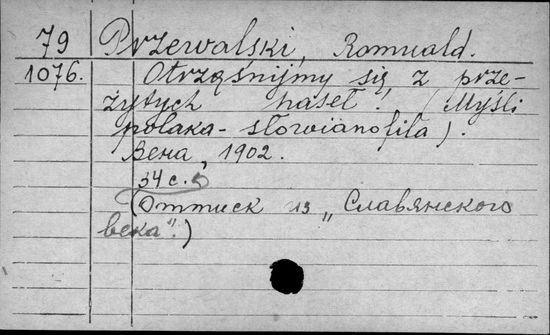 79 Przewalski, Romuald.
1076. Otrząśnijmy się z prze-
żytych haseł! (Myśli
polaka-słowianofila).
Вена, 1902.
34 с.
(Оттиск из „Славянского
века".)